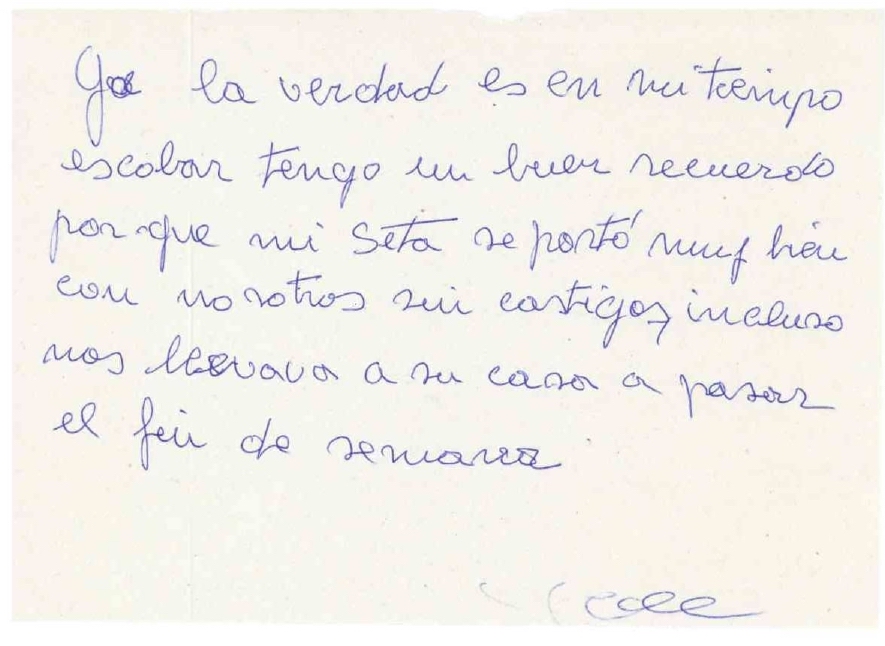 Yo la verdad es en mi tiempo
escolar tengo un buen recuerdo
por que mi Seta se portó muy bien
con nosotros sin castigos, incluso
nos llevava a su casa a pasar
el fin de semana